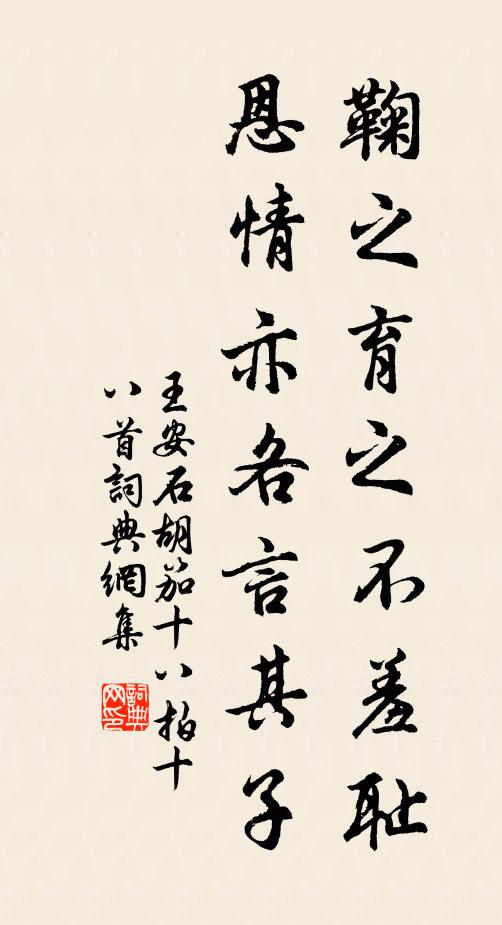 鞠之育之不羞耻
恩情亦各言其子
王安石胡笳十八拍十
八首詞典網集
詞典网印